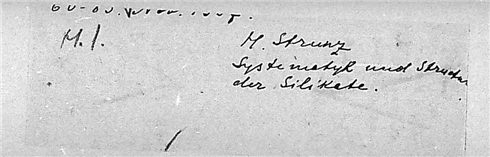 M. 1.
H. Strunz
Systimatyk und Struktur
der Silikate.